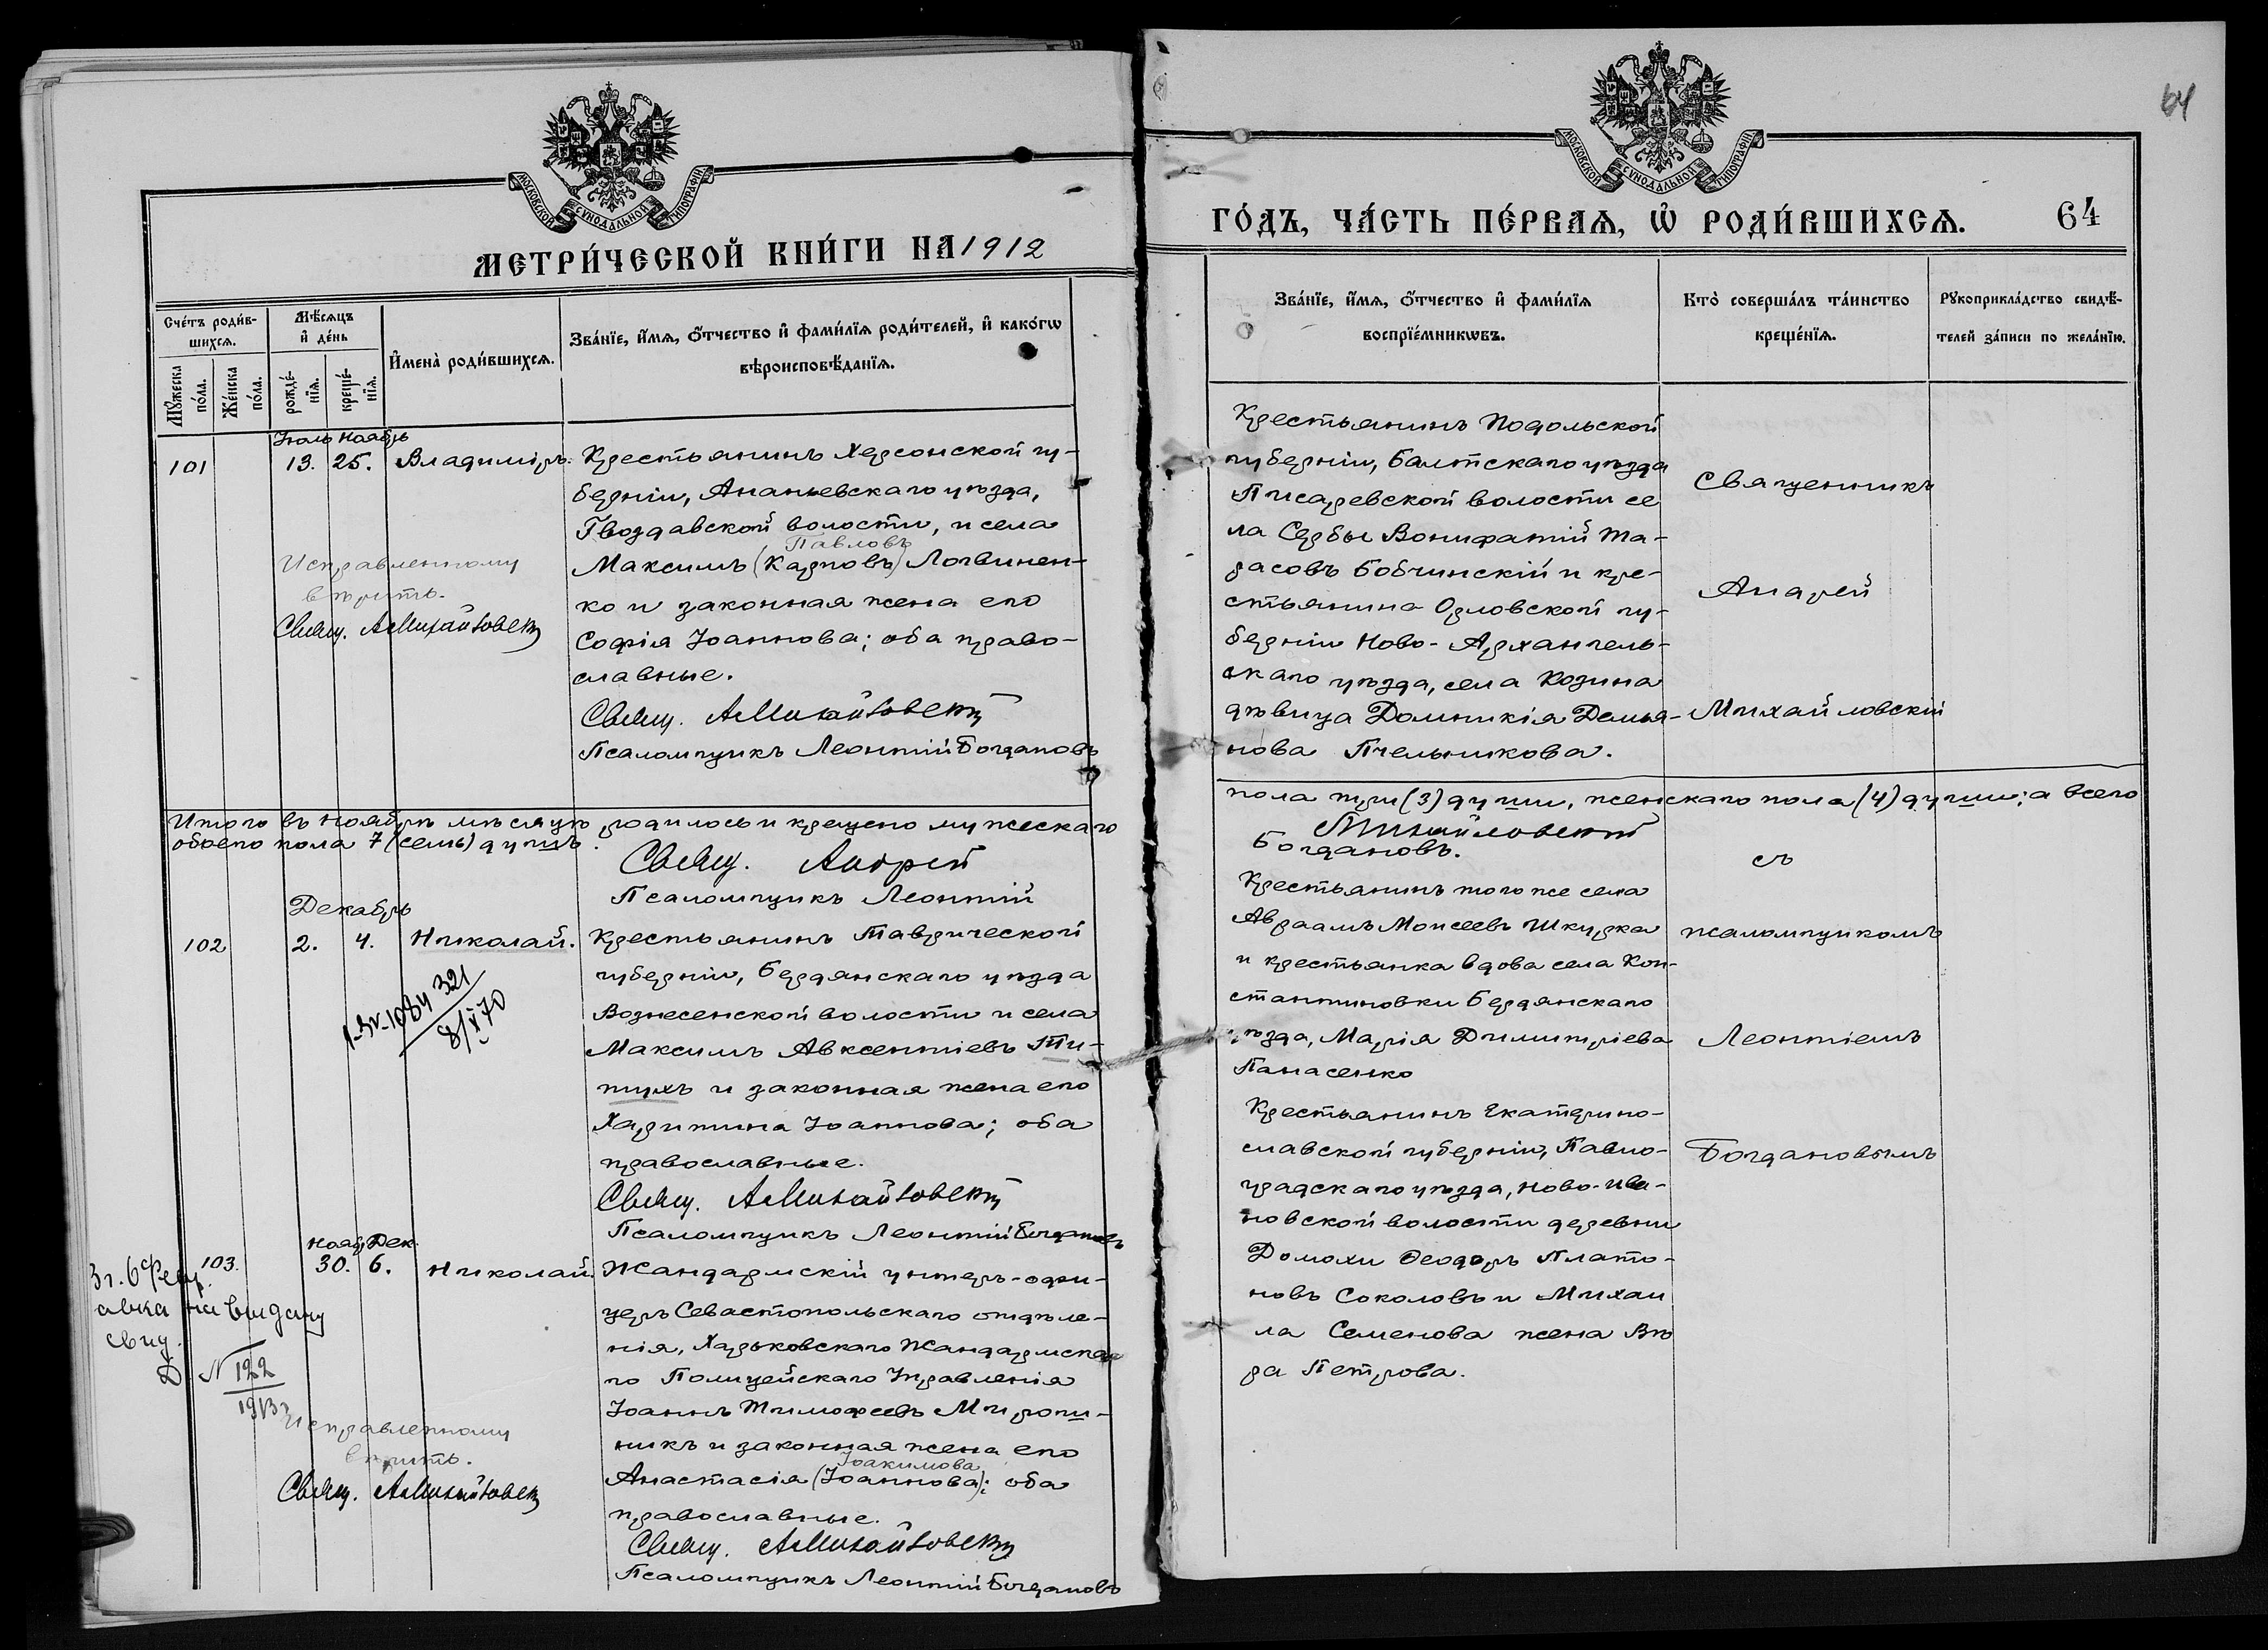 МОСКОВСКОЙ СѴНОДАЛЬНОЙ ТИПОГРАФІИ
МЕТРИ́ЧЕСКОЙ КНИ́ГИ НА 1912
Сче́тъ роди́в-
шихсѧ.
Мꙋ́жеска
по́ла.
Же́нска
по́ла.
Мѣ́сѧцъ
и҆ де́нь
рожде́-
нїѧ.
креще́-
нїѧ.
И҆мена̀ роди́вшихсѧ.
Зва́нїе, и҆́мѧ, ѻ҆́тчество и҆ фами́лїѧ роди́телей, и҆ како́гѡ
вѣроисповѣ́данїѧ.
Іюль Ноябрь
101 13. 25. Владиміръ.
Крестьянинъ Херсонской гу-
берніи, Ананьевскаго уѣзда,
Гвоздавской волости, и села
Павловъ
Максимъ (Карповъ) Логвинен-
ко и законная жена его
Софія Іоаннова; оба право-
славные.
Свящ. А. Михайловскій
Псаломщикъ Леонтій Богдановъ
Исправленному
вѣрить.
Свящ. А. Михайловскій
Итого въ ноябрѣ мѣсяцѣ родилось и крещено мужескаго
обоего пола 7 (семь) душъ.
Свящ. Андрей
Псаломщикъ Леонтій
Декабрь
102 2. 4. Николай.
321
8/X 70
Крестьянинъ Таврической
губерніи, Бердянскаго уѣзда
Вознесенской волости и села
Максимъ Авксентіевъ Пи-
тухъ и законная жена его
Харитина Іоаннова; оба
православные.
Свящ. А. Михайловскій
Псаломщикъ Леонтій Богдановъ
Нояб. Дек.
103. 30. 6. Николай.
на выдачу
свид.
N 122
1913
Жандармскій унтеръ-офи-
церъ Севастопольскаго отдѣле-
нія, Харьковскаго Жандармска-
го Полицейскаго Управленія
Іоаннъ Тимофеевъ Мирош-
никъ и законная жена его
Іоакимова
Анастасія (Іоаннова); оба
православные.
Свящ. А. Михайловскій
Псаломщикъ Леонтій Богдановъ
Исправленному
вѣрить.
Свящ. А. Михайловскій
64
МОСКОВСКОЙ СѴНОДАЛЬНОЙ ТИПОГРАФІИ
ГО́ДЪ, ЧА́СТЬ ПЕ́РВАѦ, Ѡ҆ РОДИ́ВШИХСѦ. 64
Зва́нїе, и҆́мѧ, ѻ҆́тчество и҆ фами́лїѧ
воспрїе́мникѡвъ.
Кто̀ соверша́лъ та́инство
креще́нїѧ.
Рꙋкоприкла́дство свидѣ́-
телей за́писи по жела́нїю.
Крестьянинъ Подольской
губерніи, Балтскаго уѣзда
Писаревской волости се
ла Сербы Вонифатій Та-
расовъ Бобчинскій и кре-
стьянина Орловской гу-
берніи Ново-Архангель-
скаго уѣзда, села Козина
дѣвица Домникія Демья-
нова Пчельникова.
Священникъ
Андрей
Михайловскій
пола три (3) души, женскаго пола (4) души; а всего
Михайловскій
Богдановъ.
Крестьянинъ того же села
Авраамъ Моисеевъ Шкурка
и крестьянка вдова села Кон-
стантиновки Бердянскаго
уѣзда, Марія Димитріева
Панасенко
съ
псаломщикомъ
Леонтіемъ
Богдановымъ
Крестьянинъ Екатерино-
славской губерніи, Павло-
градскаго уѣзда, Ново-Ива-
новской волости деревни
Домахи Ѳеодоръ Плато-
новъ Соколовъ и Михаи
ла Семенова жена Вѣ
ра Петрова.